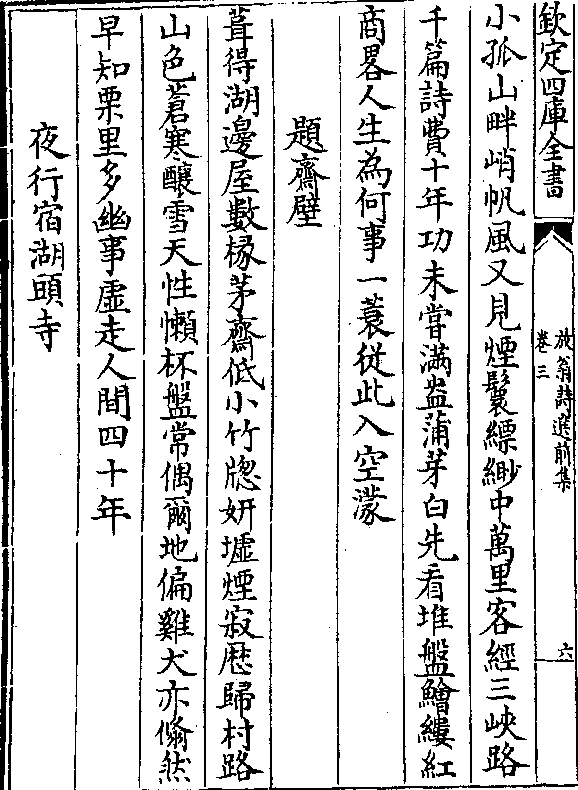 欽定四庫全書
放翁詩選前集
卷三
六
小孤山畔峭帆風又見煙鬟縹緲中萬里客經三峽路
千篇詩費十年功未嘗滿盎蒲芽白先看堆盤鱠縷紅
商畧人生為何事一蓑從此入空濛
題齋壁
葺得湖邊屋數椽茅齋低小竹牕妍墟煙寂歷歸村路
山色蒼寒釀雪天性懶杯盤常偶爾地偏雞犬亦翛然
早知栗里多幽事虛走人間四十年
夜行宿湖頭寺